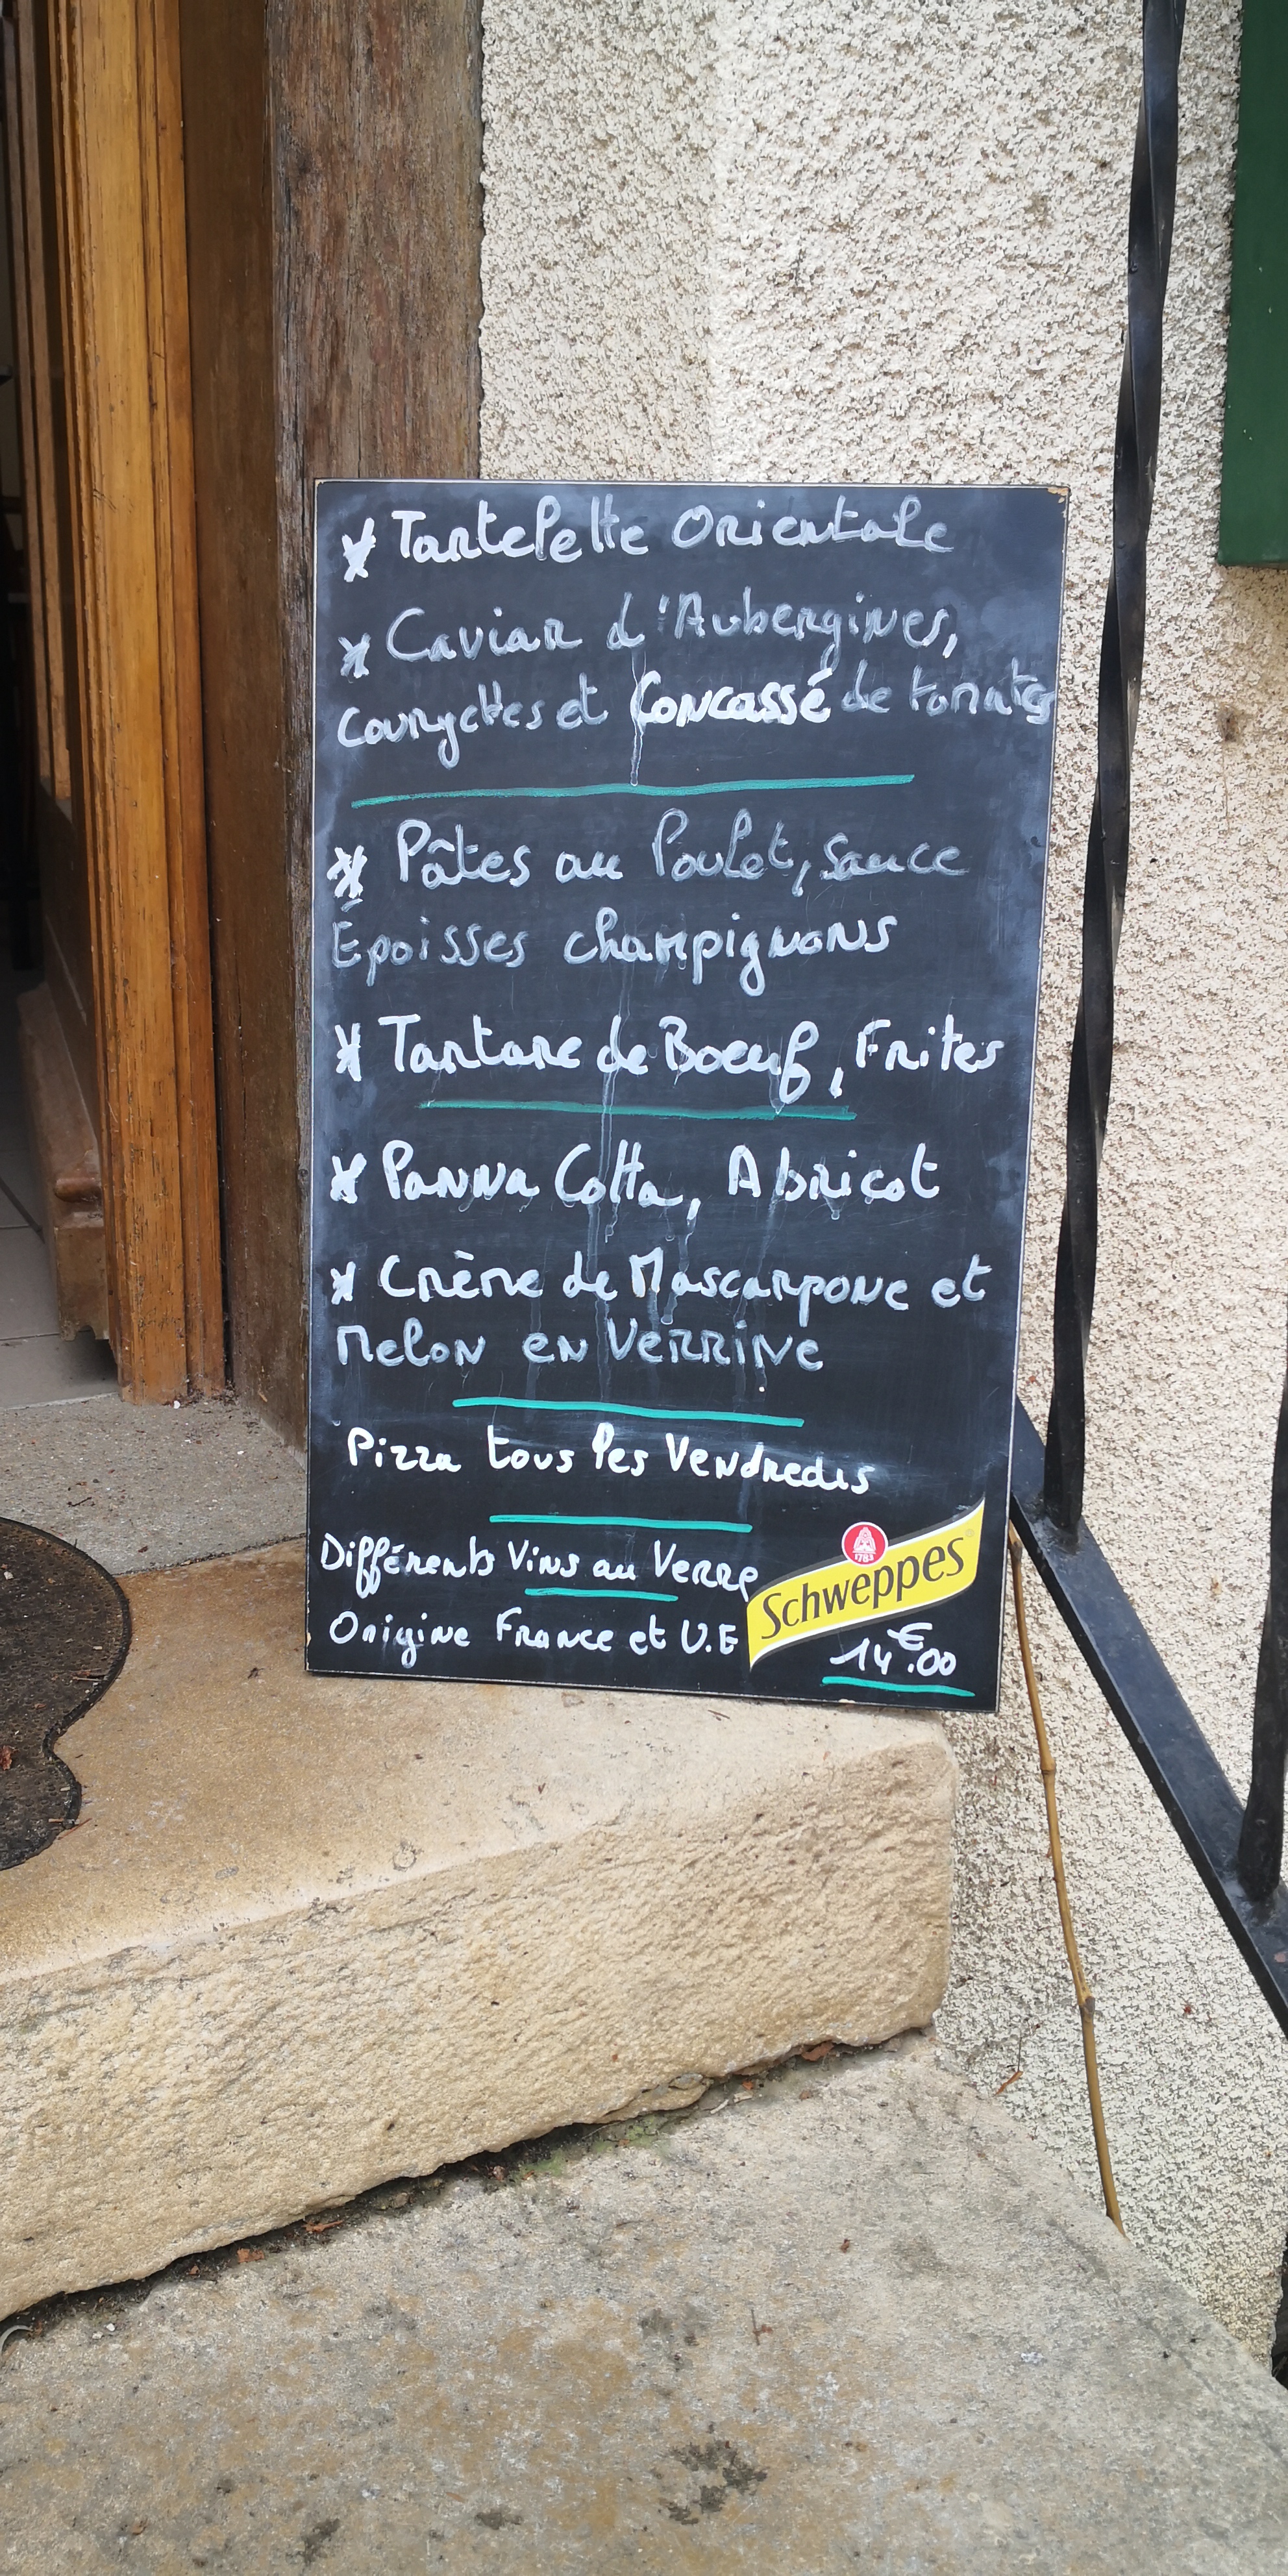 * Tartelette Orientale
* Caviar d'Aubergines,
Courgettes et Concassé de tomates
* Pâtes au Poulet, Sauce
Époisses champignons
* Tartare de Boeuf, Frites
* Panna Cotta, Abricot
* Crème de Mascarpone et
Melon en Verrine
Pizza tous les Vendredis
Différents Vins au Verre
Origine France et U.E
1783
Schweppes
14€.00